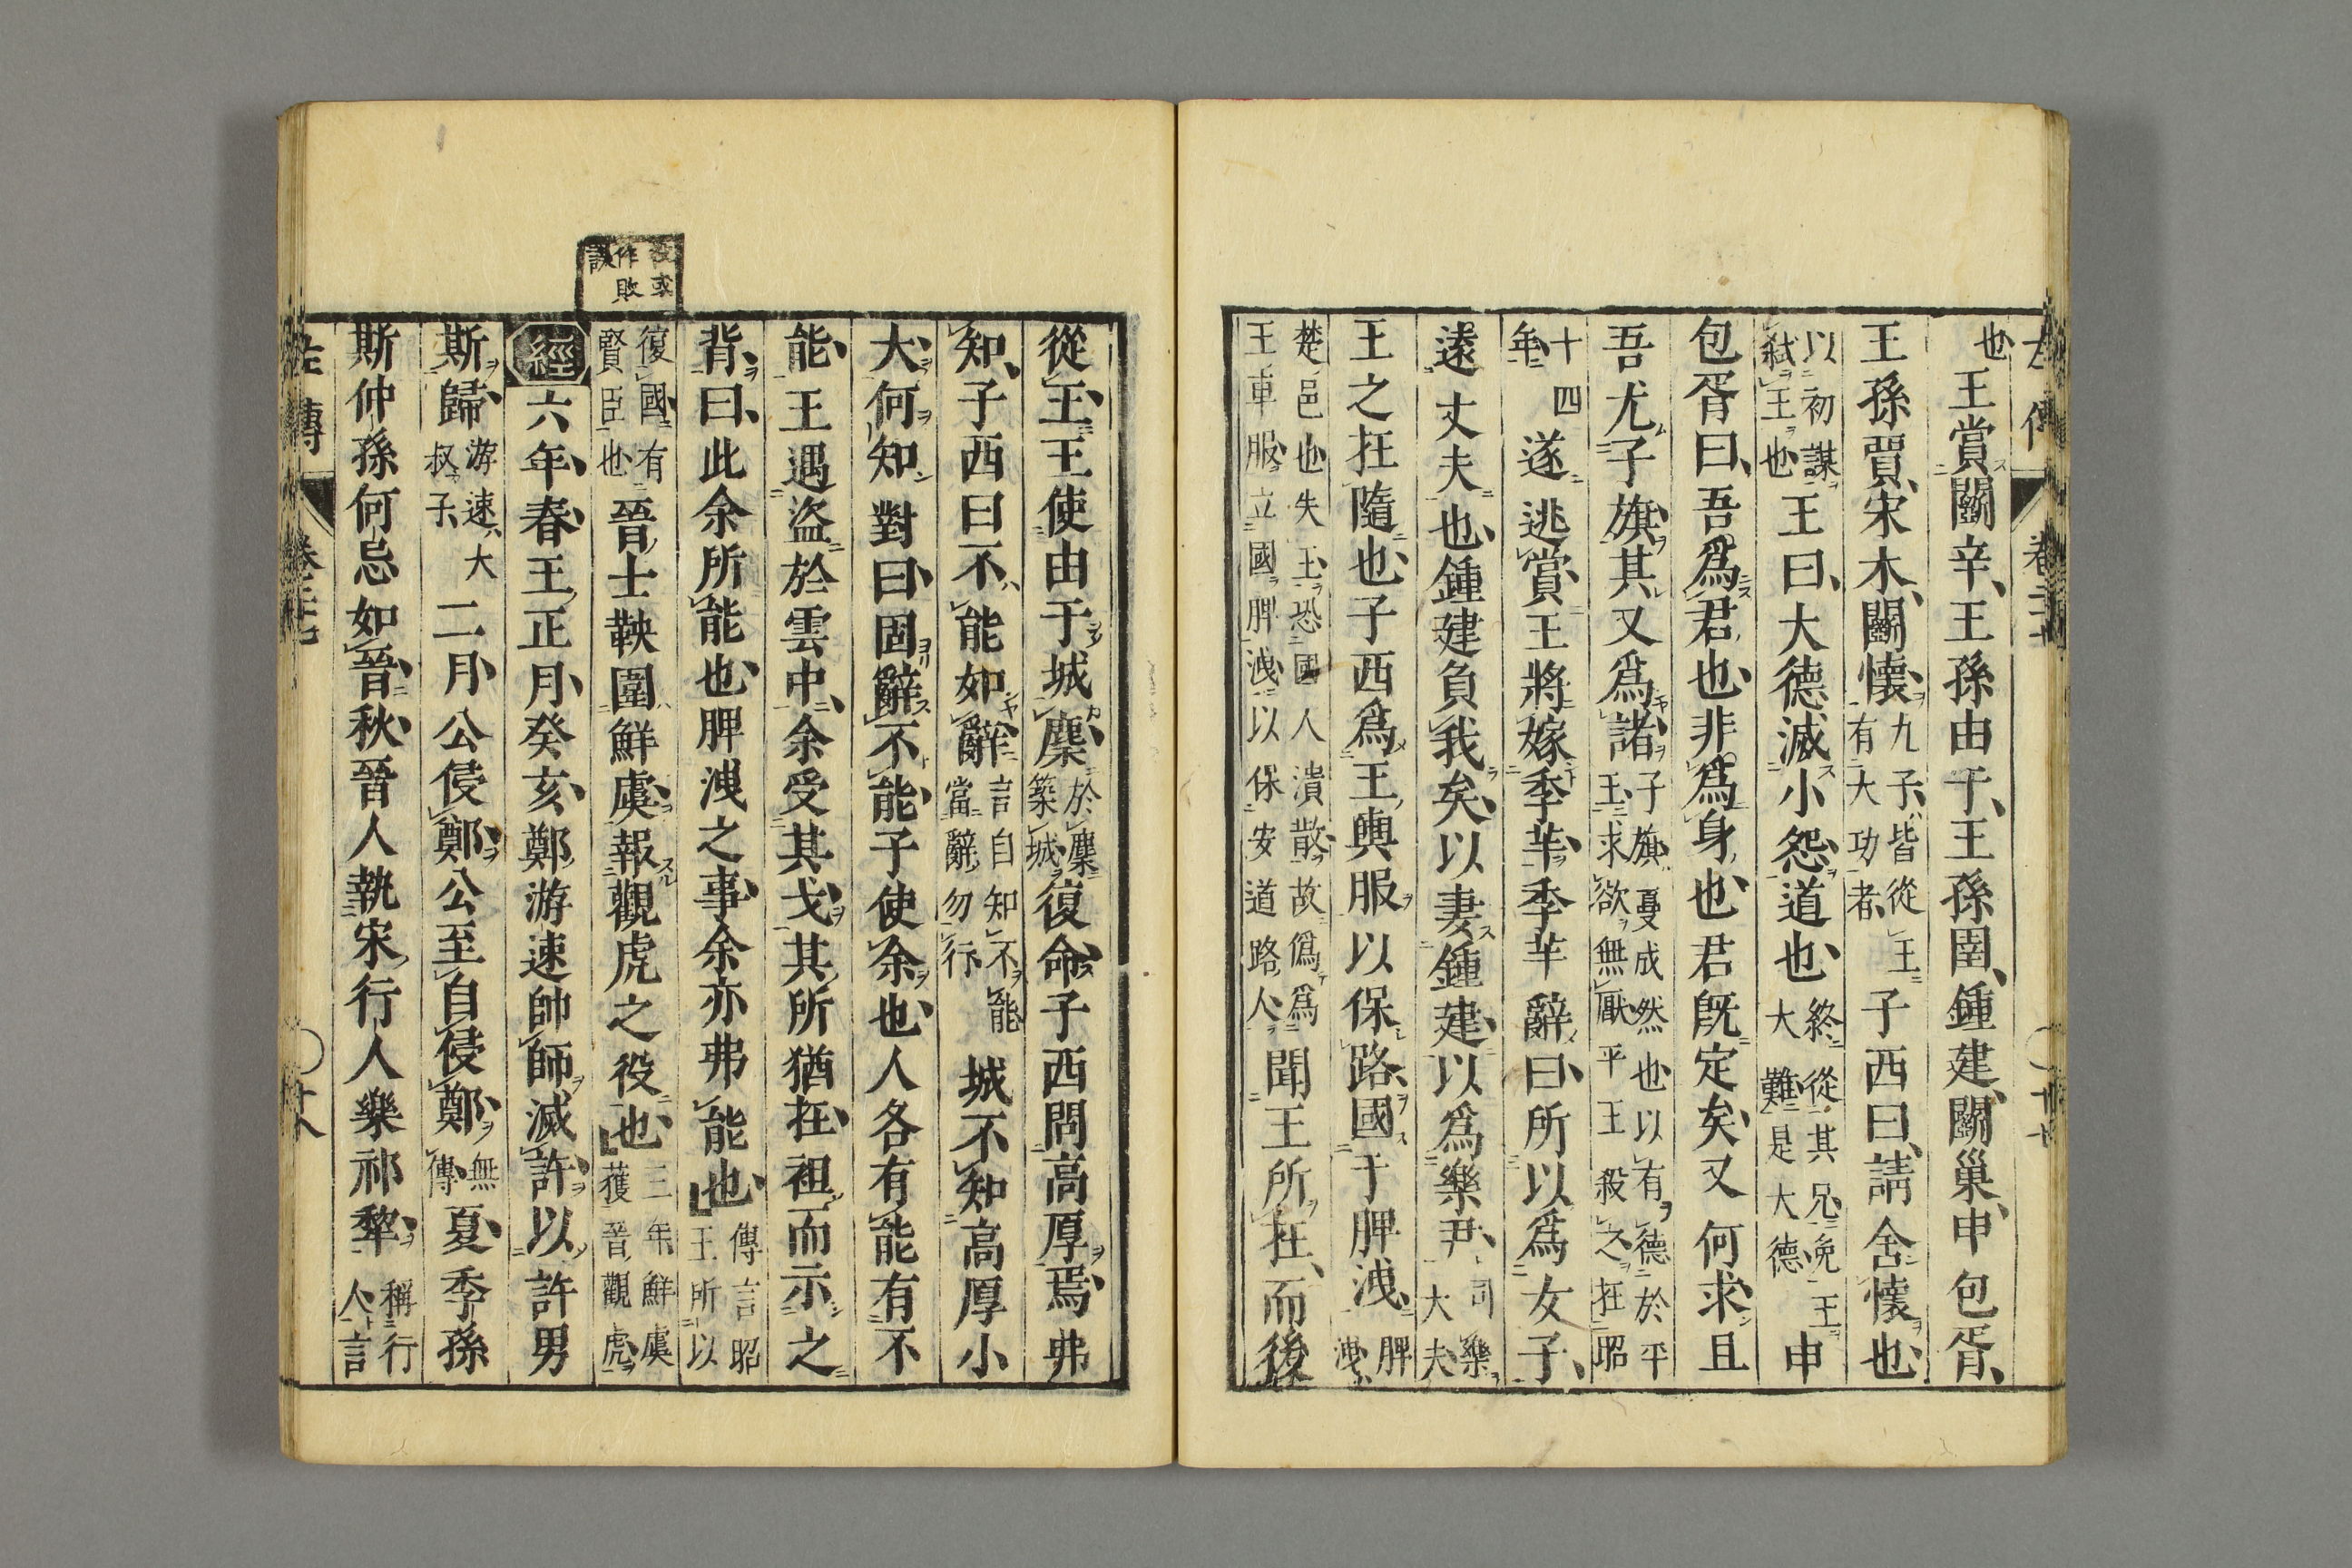 也王賞鬭辛、王孫由于、王孫圉、鍾建、鬭巢、申包胥、
王孫賈、宋木、鬭懷、九子、皆從王有大功者、子西曰、請舍懷也、
以初謀弑王也王曰、大德滅小怨道也、終從其兄、免王大難、是大德、申
包胥曰、吾爲君也、非爲身也、君既定矣、又何求、且
吾尤子旗、其又爲諸、子旗、蔓成然也、以有德於平王、求欲無厭、平王殺之、在昭
十四年遂逃賞、王將嫁季芊、季芊辭曰、所以爲女子、
遠丈夫也、鍾建負我矣、以妻鍾建、以爲樂尹、司樂大夫
王之在隨也、子西爲王輿服、以保路、國于脾洩、脾洩、
楚邑也失王、恐國人潰散、故僞爲王車服、立國脾洩、以保安道路人聞王所在、而後
從王、王使由于城麇、於麇築城復命、子西問高厚焉、弗
知、子西曰、不能如辭、言自知不能當辭勿行、城不知高厚小
大、何知、對曰、固辭不能、子使余也、人各有能有不
能、王遇盜於雲中、余受其戈、其所猶在、袒而示之
背、曰、此余所能也、脾洩之事、余亦弗能也、傳言昭王所以
復國、有賢臣也、晉士鞅圍鮮虞、報觀虎之役也、三年、鮮虞獲晉觀虎、
經六年、春、王正月、癸亥、鄭游速帥師滅許、以許男
斯歸、游速、大叔子、二月、公侵鄭、公至自侵鄭、無傳、夏、季孫
斯仲孫何忌如晉、秋、晉人執宋行人樂祁犂、稱行人、言
左傳 卷二十七
作敗
誤